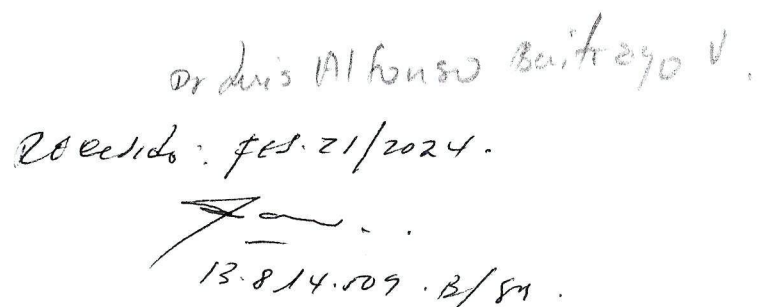 Dr Luis Alfonso Buitrago V.
Recibido: Feb. 21/2024.
13.814.509. B/ga.